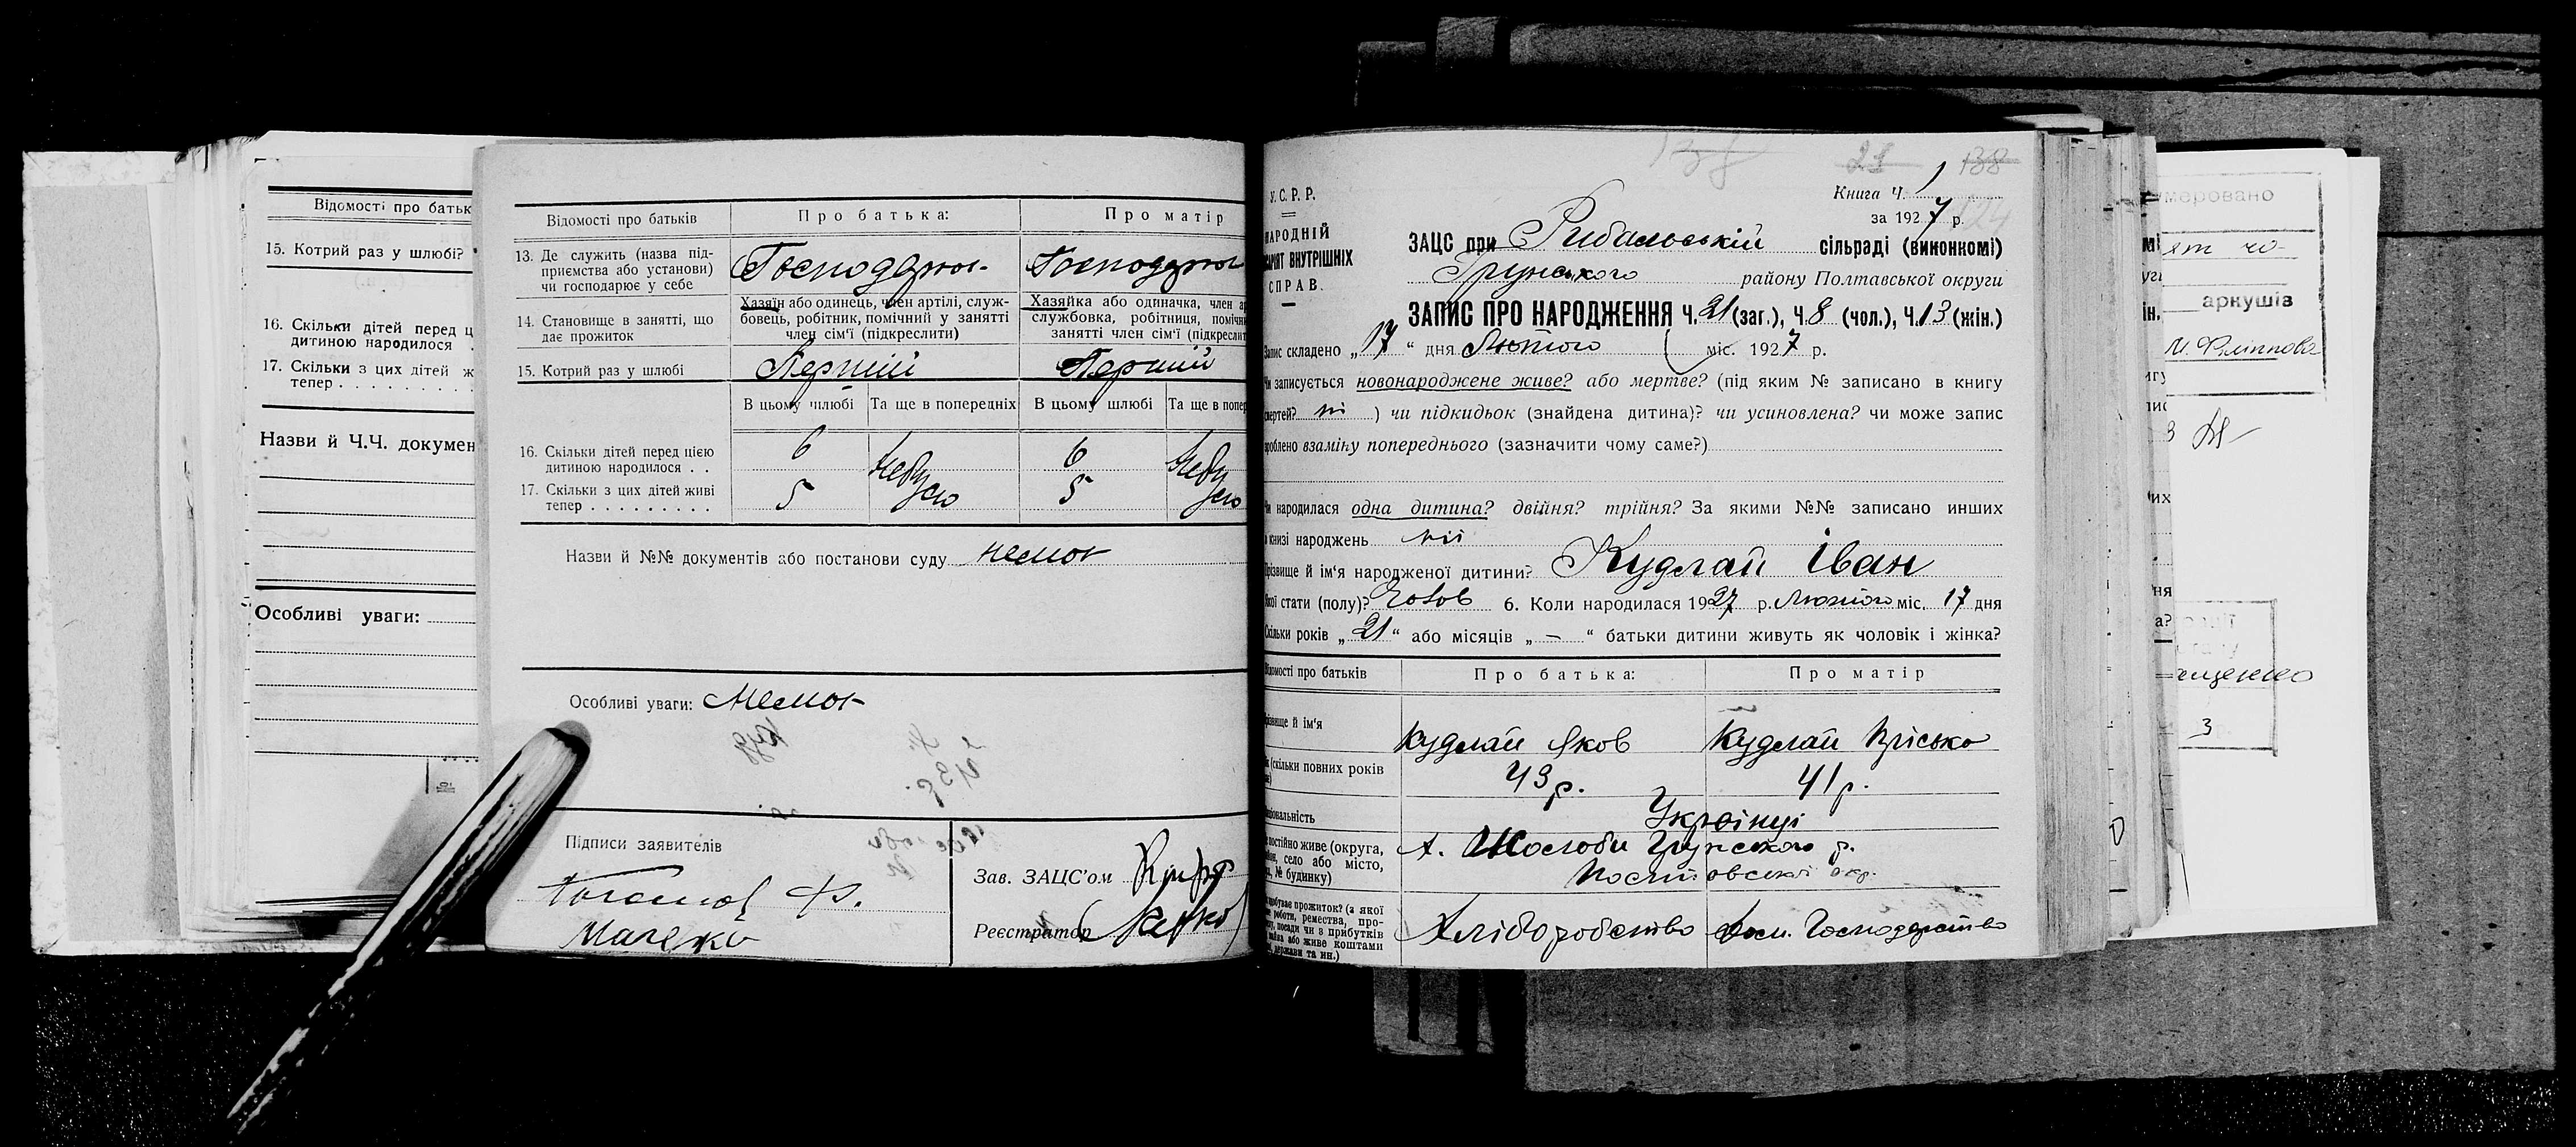 Відомості про батьк
15. Котрий раз у шлюбі?
16. Скільки дітей перед ц
дитиною народилося .
17. Скільки з цих дітей ж
тепер . . . . . . . .
Назви й Ч.Ч. докумен
Особливі уваги:
Відомості про батьків
Про батька:
Про матір
13. Де служить (назва під-
приємства або установи)
чи господарює у себе
14. Становище в занятті, що
дає прожиток
Хазяїн або одинець, член артілі, служ-
бовець, робітник, помічний у занятті
член сім'ї (підкреслити)
Хазяйка або одиначка, член ар
службовка, робітниця, помічн
занятті член сім'ї (підкреслит
15. Котрий раз у шлюбі
Перший
Перший
В цьому шлюбі
Та ще в попередніх
В цьому шлюбі
Та ще в попер
16. Скільки дітей перед цією
дитиною народилося . .
6
6
17. Скільки з цих дітей живі
тепер . . . . . . . . .
5
5
Назви й №№ документів або постанови суду немає
Особливі уваги: Немає
Підписи заявителів
Зав. ЗАЦС'ом
Реєстратор
138 21 138
У.С.Р.Р.
НАРОДНІЙ
ВНУТРІШНІХ
СПРАВ.
Книга Ч. 1
за 1927 р.
ЗАЦС при Рибальській сільраді (виконкомі)
Грунського району Полтавської округи
ЗАПИС ПРО НАРОДЖЕННЯ Ч. 21 (заг.), Ч. 8 (чол.), Ч. 13 (жін.)
Запис складено „17“ дня Лютого міс. 1927 р.
Чи записується новонароджене живе? або мертве? (під яким № записано в книгу
смертей? ні ) чи підкидьок (знайдена дитина)? чи усиновлена? чи може запис
зроблено взаміну попереднього (зазначити чому саме?)
Чи народилася одна дитина? двійня? трійня? За якими №№ записано инших
в книзі народжень ні
Прізвище й ім'я народженої дитини? Кудлай Іван
Якої стати (полу)? Чолов 6. Коли народилася 1927 р. Лютого міс. 17 дня
Скільки років „21“ або місяців „—“ батьки дитини живуть як чоловік і жінка?
Відомості про батьків
Про батька:
Про матір
Прізвище й ім'я
Кудлай Яков
Кудлай Пріська
(скільки повних років
43 р.
41 р.
Українці
постійно живе (округа,
село або місто,
№ будинку)
Х. Жолоби Грунського р.
Полтавської окр.
прожиток? (з якої
роботи, ремества, про-
посади чи з прибутків
або живе коштами
держави та ин.)
Хліборобство
Дом. Господарство
умеровано
аркушів
3